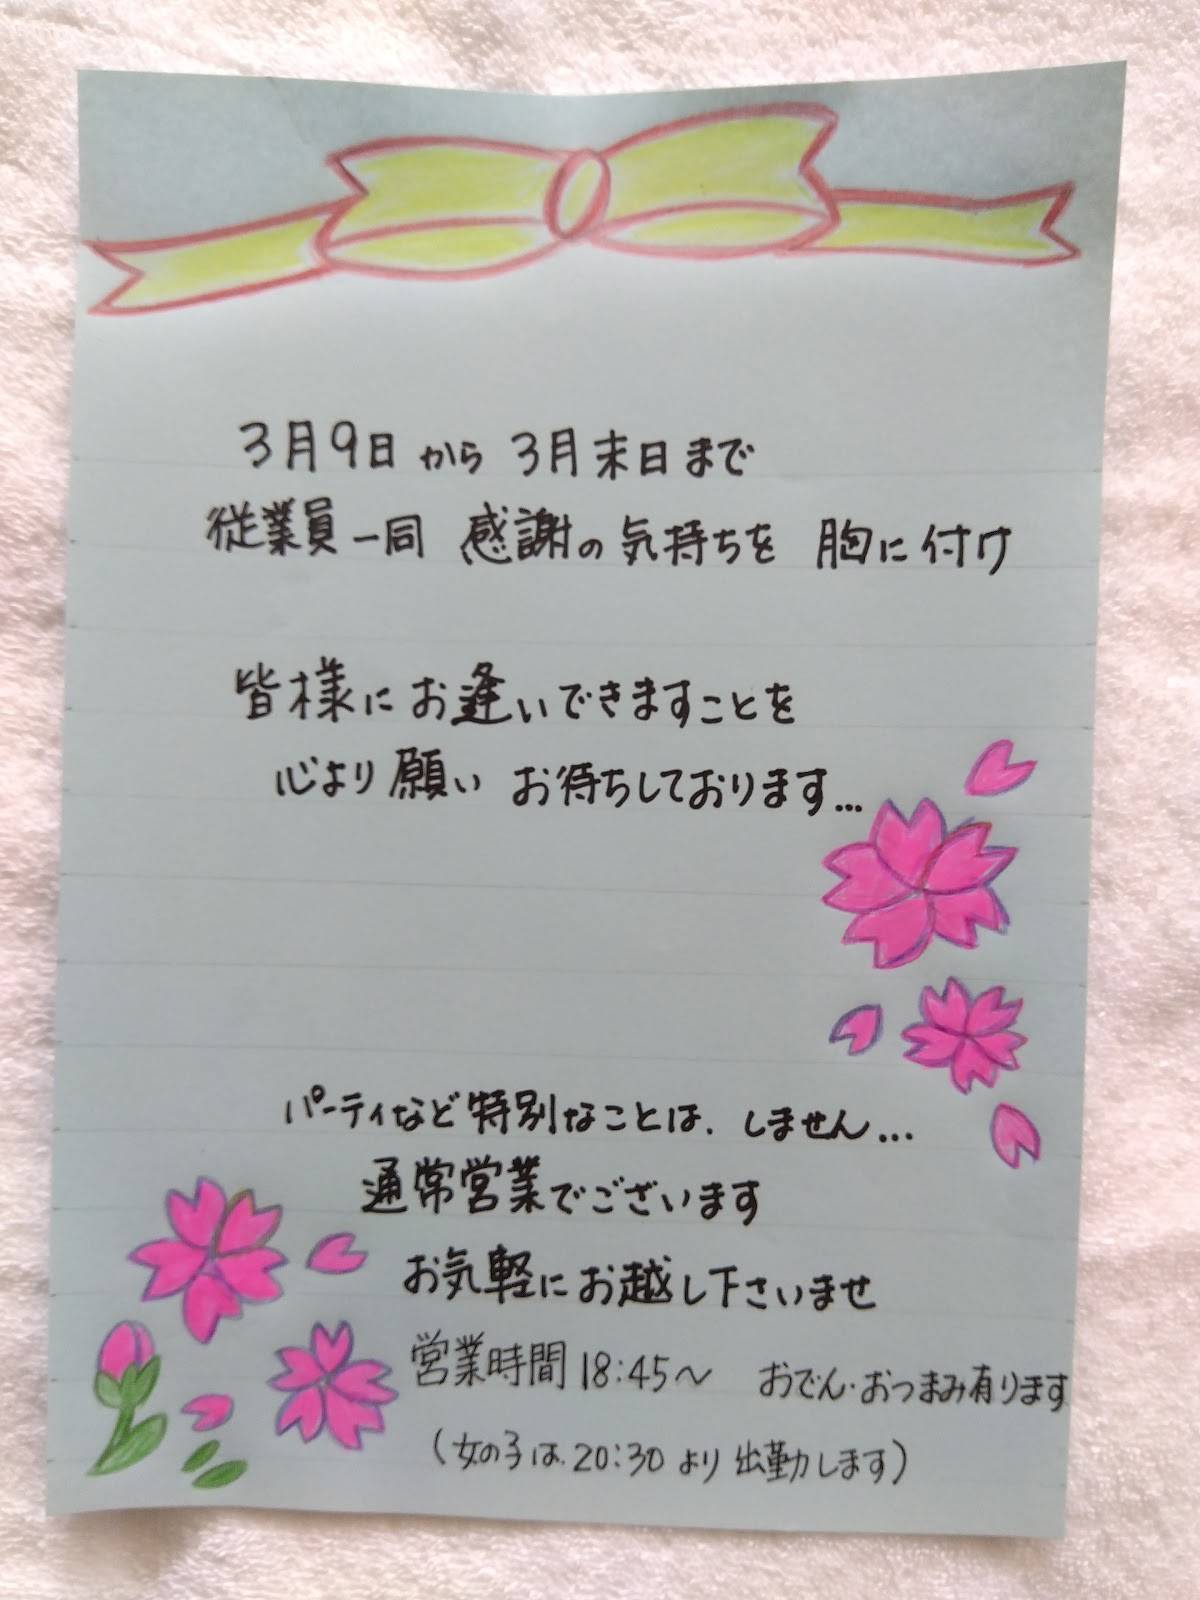 3月9日から3月末日まで
従業員一同 感謝の気持ちを 胸に付け
皆様にお逢いできますことを
心より願い お待ちしております...
パーティなど特別なことは、しません...
通常営業でございます
お気軽にお越し下さいませ
営業時間18:45〜 おでん・おつまみ有ります
(女の子は、20:30より出勤します)